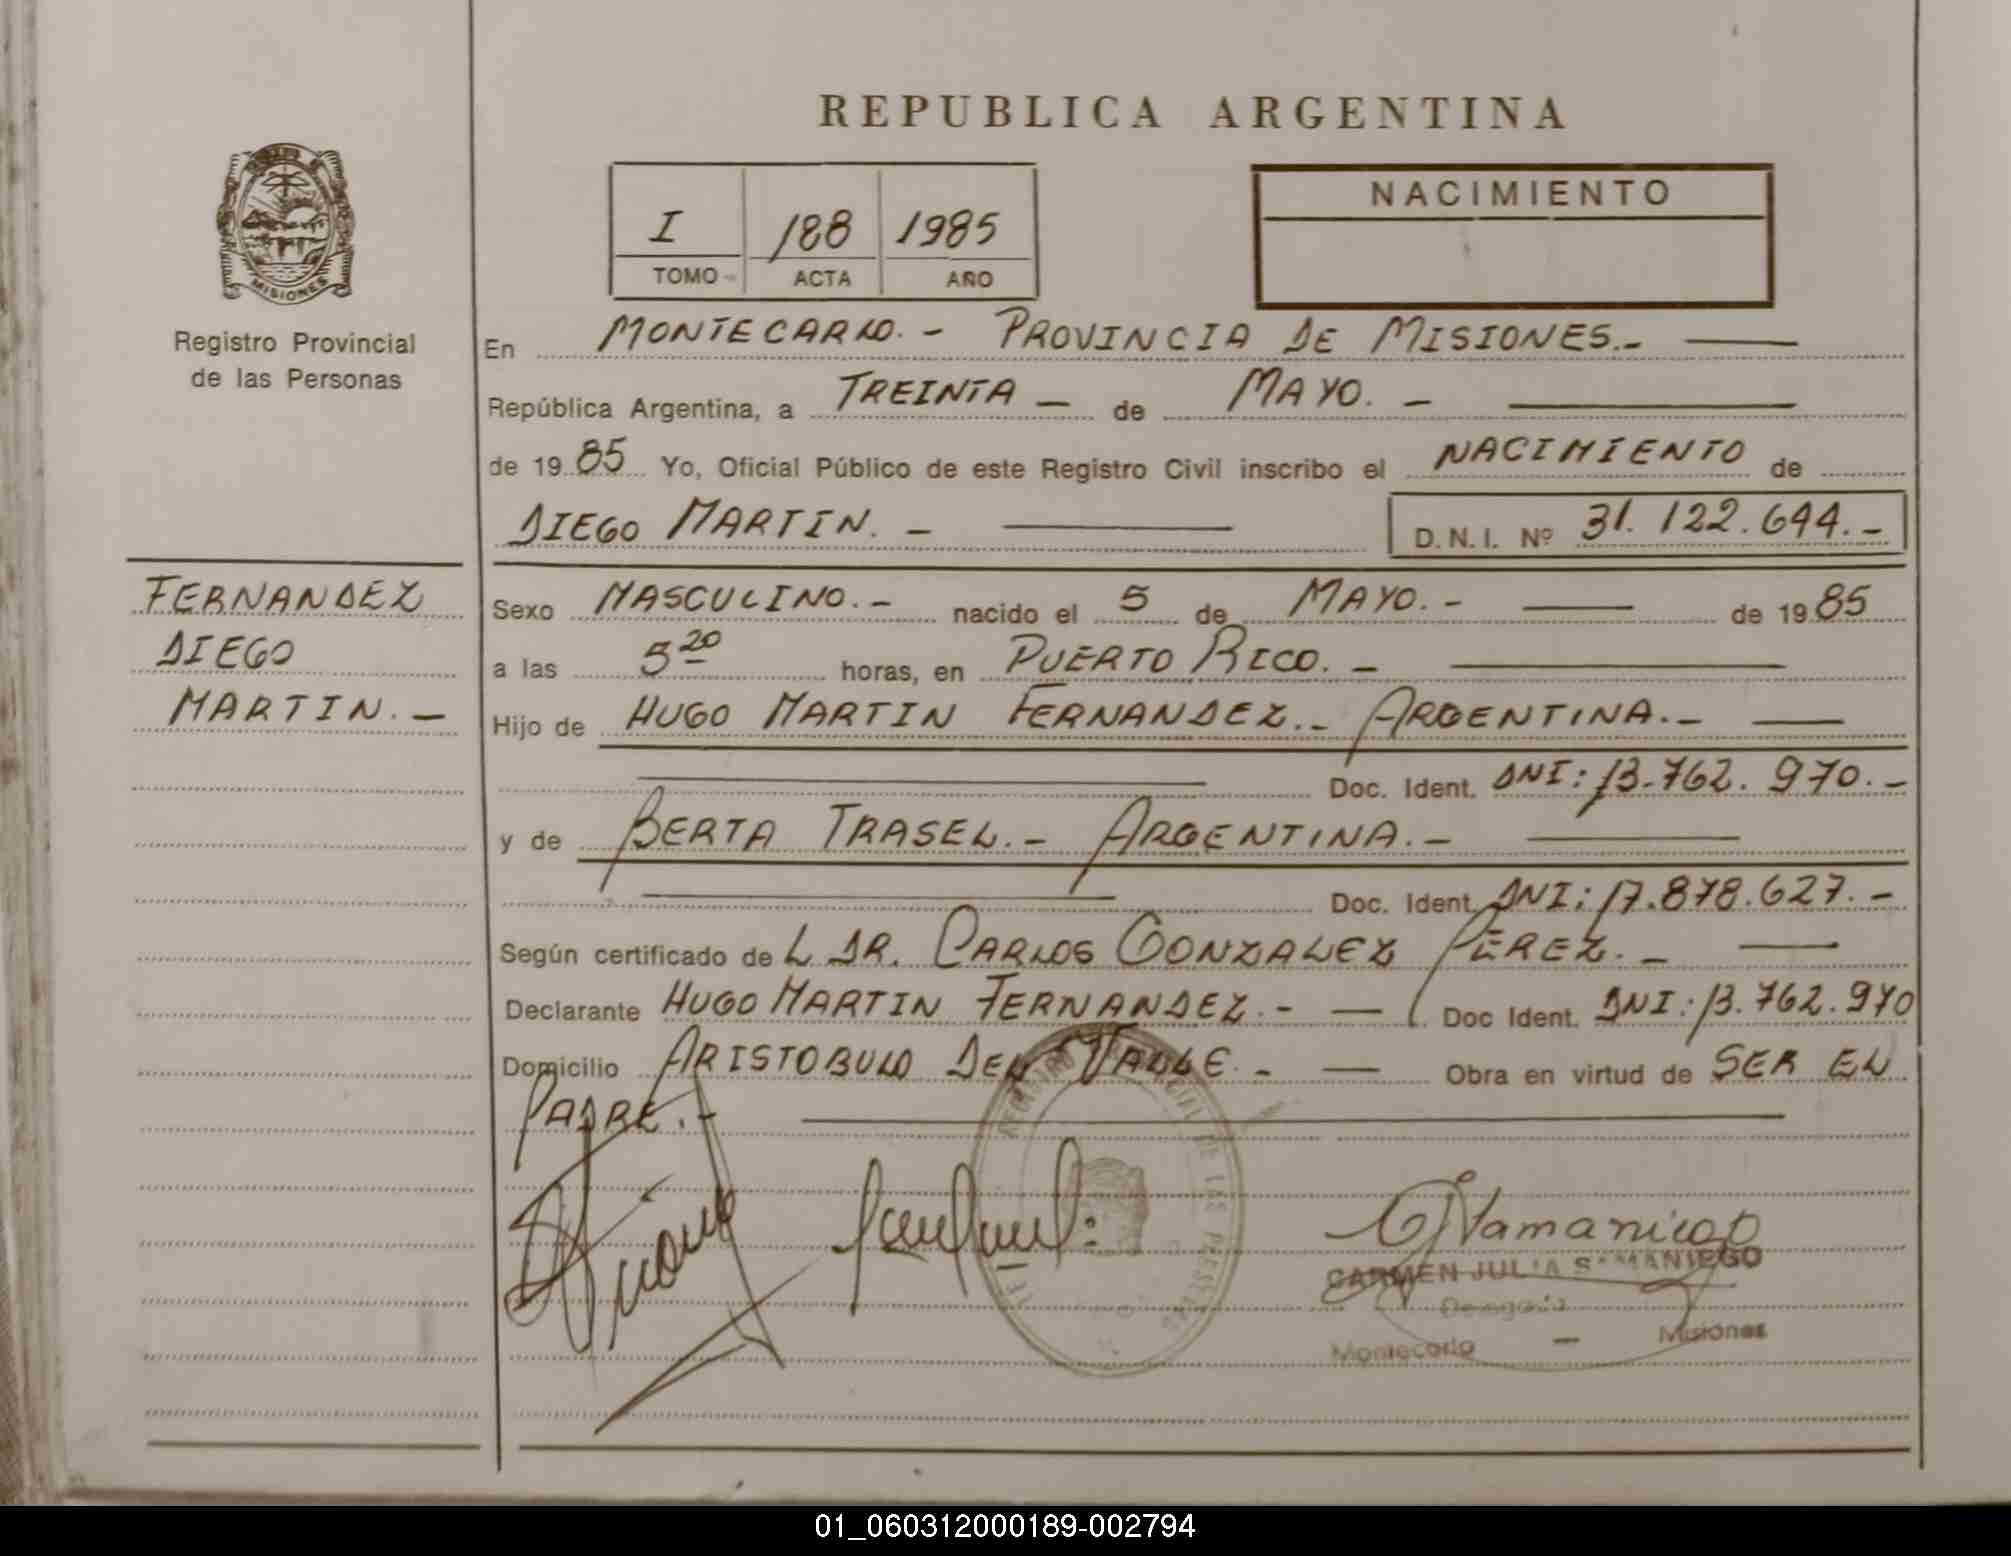 REPUBLICA ARGENTINA
MISIONES
Registro Provincial
de las Personas
I 188 1985
TOMO ACTA AÑO
NACIMIENTO
En MONTECARLO.- PROVINCIA DE MISIONES.-
República Argentina, a TREINTA - de MAYO. -
de 19 85 Yo, Oficial Público de este Registro Civil inscribo el NACIMIENTO de
DIEGO MARTIN. - D.N.I. Nº 31.122.644.-
FERNANDEZ
DIEGO
MARTIN. -
Sexo MASCULINO.- nacido el 5 de MAYO.- de 19 85
a las 5 20 horas, en PUERTO RICO. -
Hijo de HUGO MARTIN FERNANDEZ.- ARGENTINA.-
Doc. Ident. DNI: 13.762.970.-
y de BERTA TRASEL.- ARGENTINA.-
Doc. Ident. DNI: 17.878.627.-
Según certificado de L DR. CARLOS GONZALEZ PEREZ. -
Declarante HUGO MARTIN FERNANDEZ.- Doc Ident. DNI: 13.762.970
Domicilio ARISTOBULO DEL VALLE. - Obra en virtud de SER EL
PADRE.-
REGISTRO PROVINCIAL DE LAS PERSONAS
CARMEN JULIA SAMANIEGO
Delegada
Montecarlo - Misiones
01_060312000189-002794